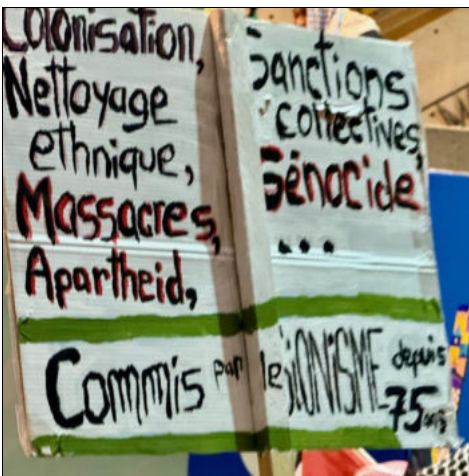 Colonisation,
Nettoyage
ethnique,
Massacres,
Apartheid,
Sanctions
collectives,
Génocide
...
Commis par le SIONISME depuis
75 ans